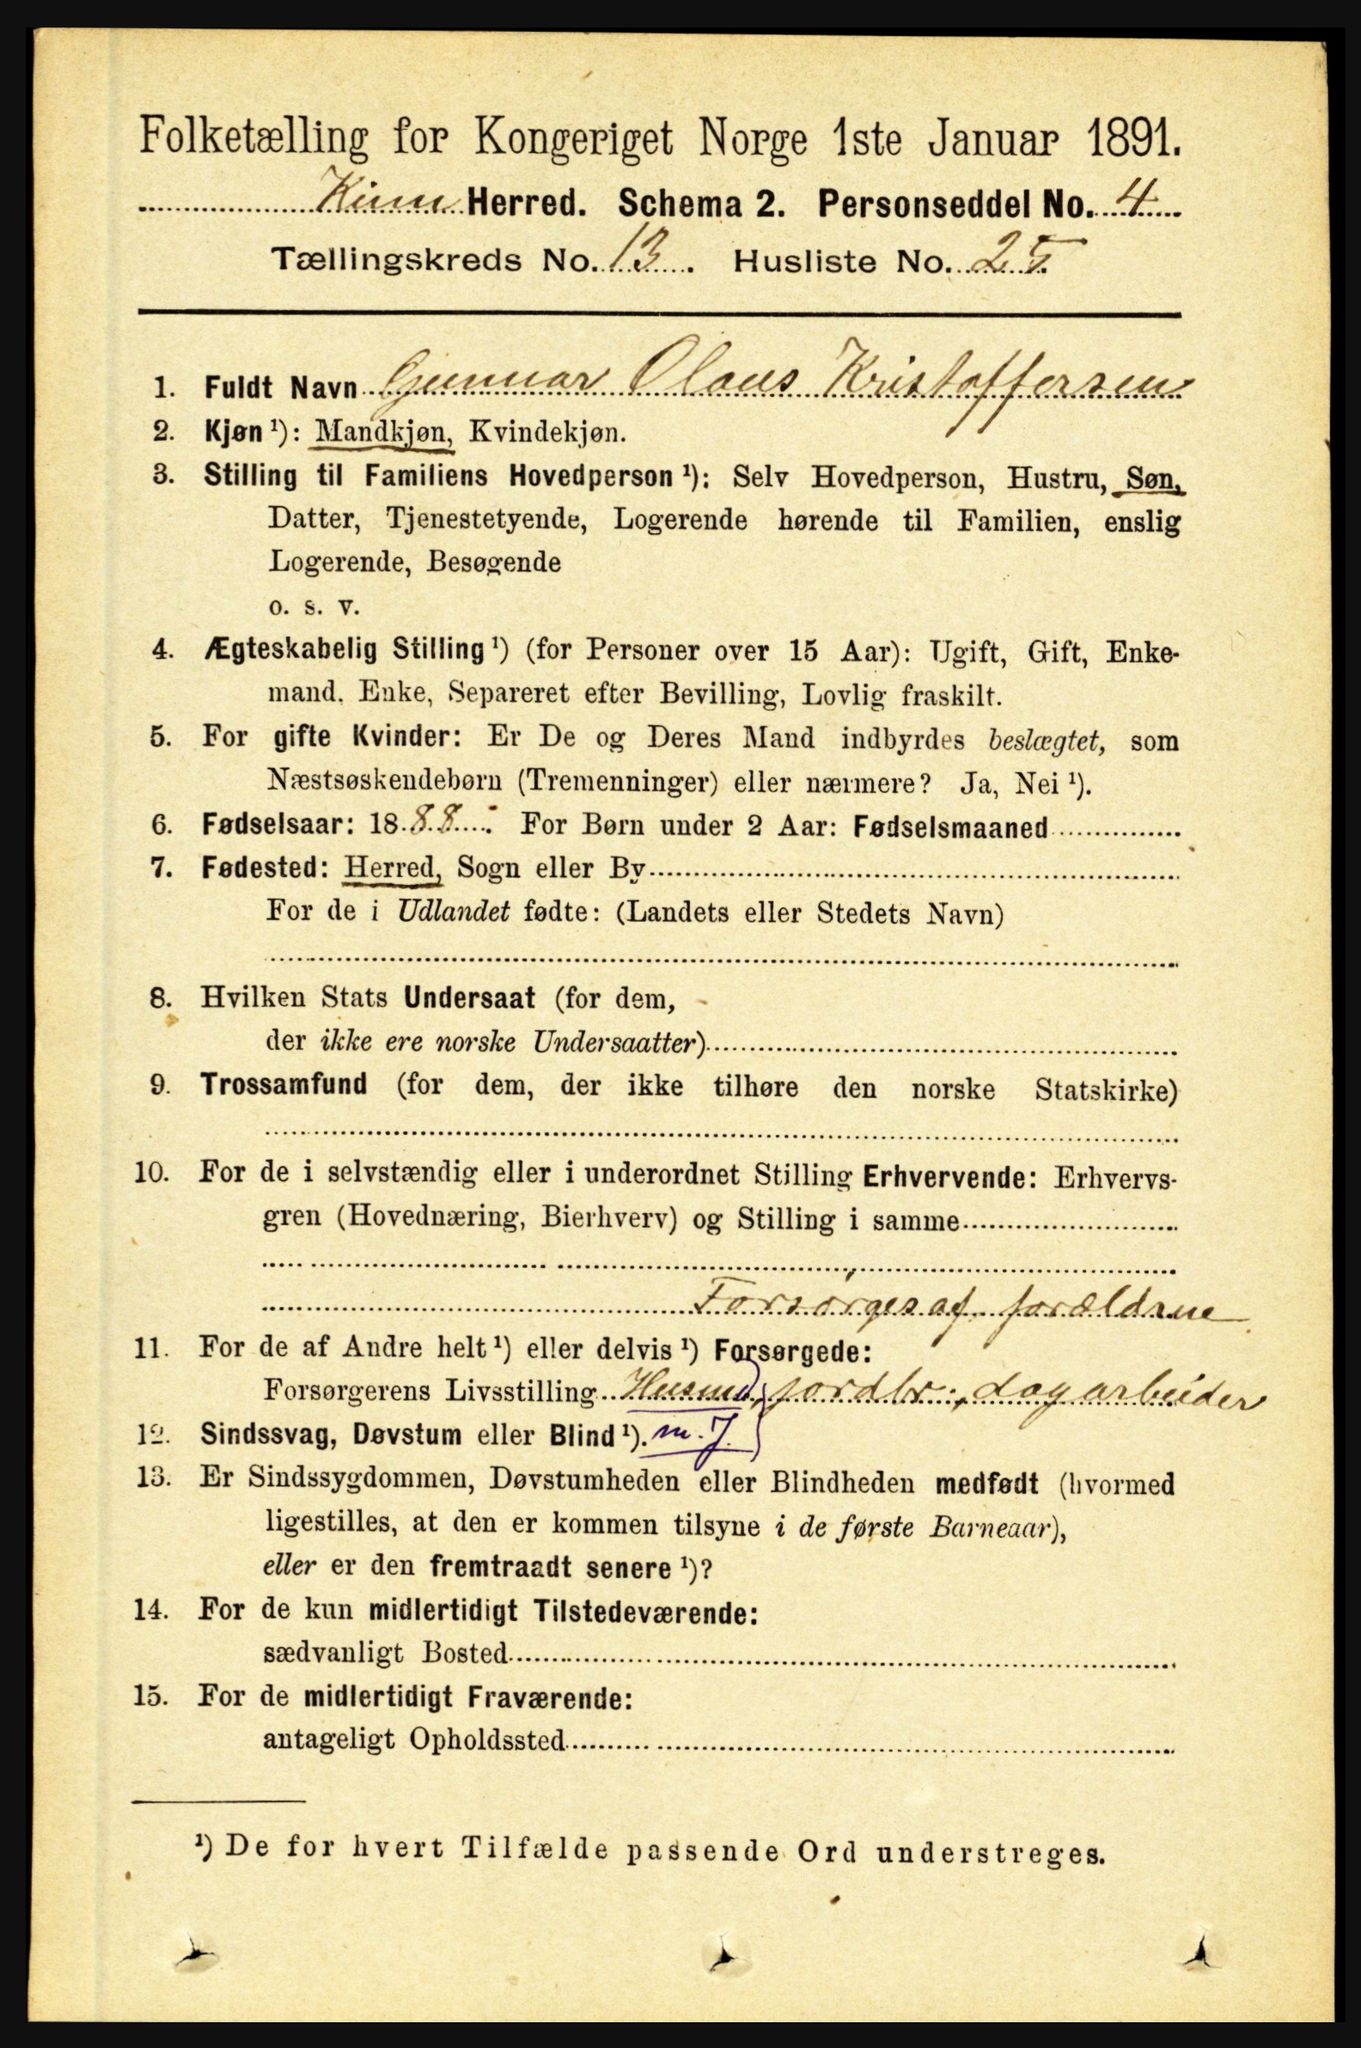 Folketælling for Kongeriget Norge 1ste Januar 1891.
Kinn Herred. Schema 2. Personseddel No. 4
Tællingskreds No. 13. Husliste No. 25
1. Fuldt Navn Gunnar Olaus Kristoffersen
2. Kjøn ¹): Mandkjøn, Kvindekjøn.
3. Stilling til Familiens Hovedperson ¹): Selv Hovedperson, Hustru, Søn,
Datter, Tjenestetyende, Logerende hørende til Familien, enslig
Logerende, Besøgende
o. s. v.
4. Ægteskabelig Stilling ¹) (for Personer over 15 Aar): Ugift, Gift, Enke-
mand, Enke, Separeret efter Bevilling, Lovlig fraskilt.
5. For gifte Kvinder: Er De og Deres Mand indbyrdes beslægtet, som
Næstsøskendebørn (Tremenninger) eller nærmere? Ja, Nei ¹).
6. Fødselsaar: 1888. For Børn under 2 Aar: Fødselsmaaned
7. Fødested: Herred, Sogn eller By
For de i Udlandet fødte: (Landets eller Stedets Navn)
8. Hvilken Stats Undersaat (for dem,
der ikke ere norske Undersaatter)
9. Trossamfund (for dem, der ikke tilhøre den norske Statskirke)
10. For de i selvstændig eller i underordnet Stilling Erhvervende: Erhvervs-
gren (Hovednæring, Bierhverv) og Stilling i samme
Forsørges af forældrene
11. For de af Andre helt ¹) eller delvis ¹) Forsørgede:
Forsørgerens Livsstilling Husmd, jordbr., dagarbeider
12. Sindssvag, Døvstum eller Blind ¹). m. J.
13. Er Sindssygdommen, Døvstumheden eller Blindheden medfødt (hvormed
ligestilles, at den er kommen tilsyne i de første Barneaar),
eller er den fremtraadt senere ¹)?
14. For de kun midlertidigt Tilstedeværende:
sædvanligt Bosted
15. For de midlertidigt Fraværende:
antageligt Opholdssted
¹) De for hvert Tilfælde passende Ord understreges.